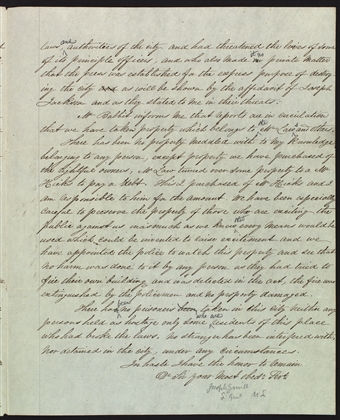 laws and authorities of the city and had threatened the lives of some
of its principle officers, and who also made it no private matter
that the press was established for the express purpose of destroy
ing the city as will be shown by the affidavit of Joseph
Jackson and as they stated to me in their threats.
Mr Bashit informs me that reports are in circulation
that we have taken property which belongs to Mr Law and others.
There has been no property meddled with to my knowledge
belonging to any person, except property we have purchased of
the rightful owners, Mr Law turned over some property to a Mr
Hicks to pay a debt. This I purchased of Mr Hicks and I
am responsible to him for the amount. we have been especially
careful to preserve the property of those who are exciting the
public against us inasmuch as we knew that every means would be
used which could be invented to raise excitement and we
have appointed the police to watch this property and see that
no harm was done to it by any person, as they had tried to
fire their own building and was detected in the act, the fire was
extinguished by the policemen and no property damaged.
There has been no prisoners taken in this city neither any
persons held as hostage only some residents of this place
who had broke the laws. No stranger has been interfered with
nor detained in the city, under any circumstances.
In haste I have the honor to remain
Dr Sir your most obedt Servt
Joseph Smith
L. Genl N L